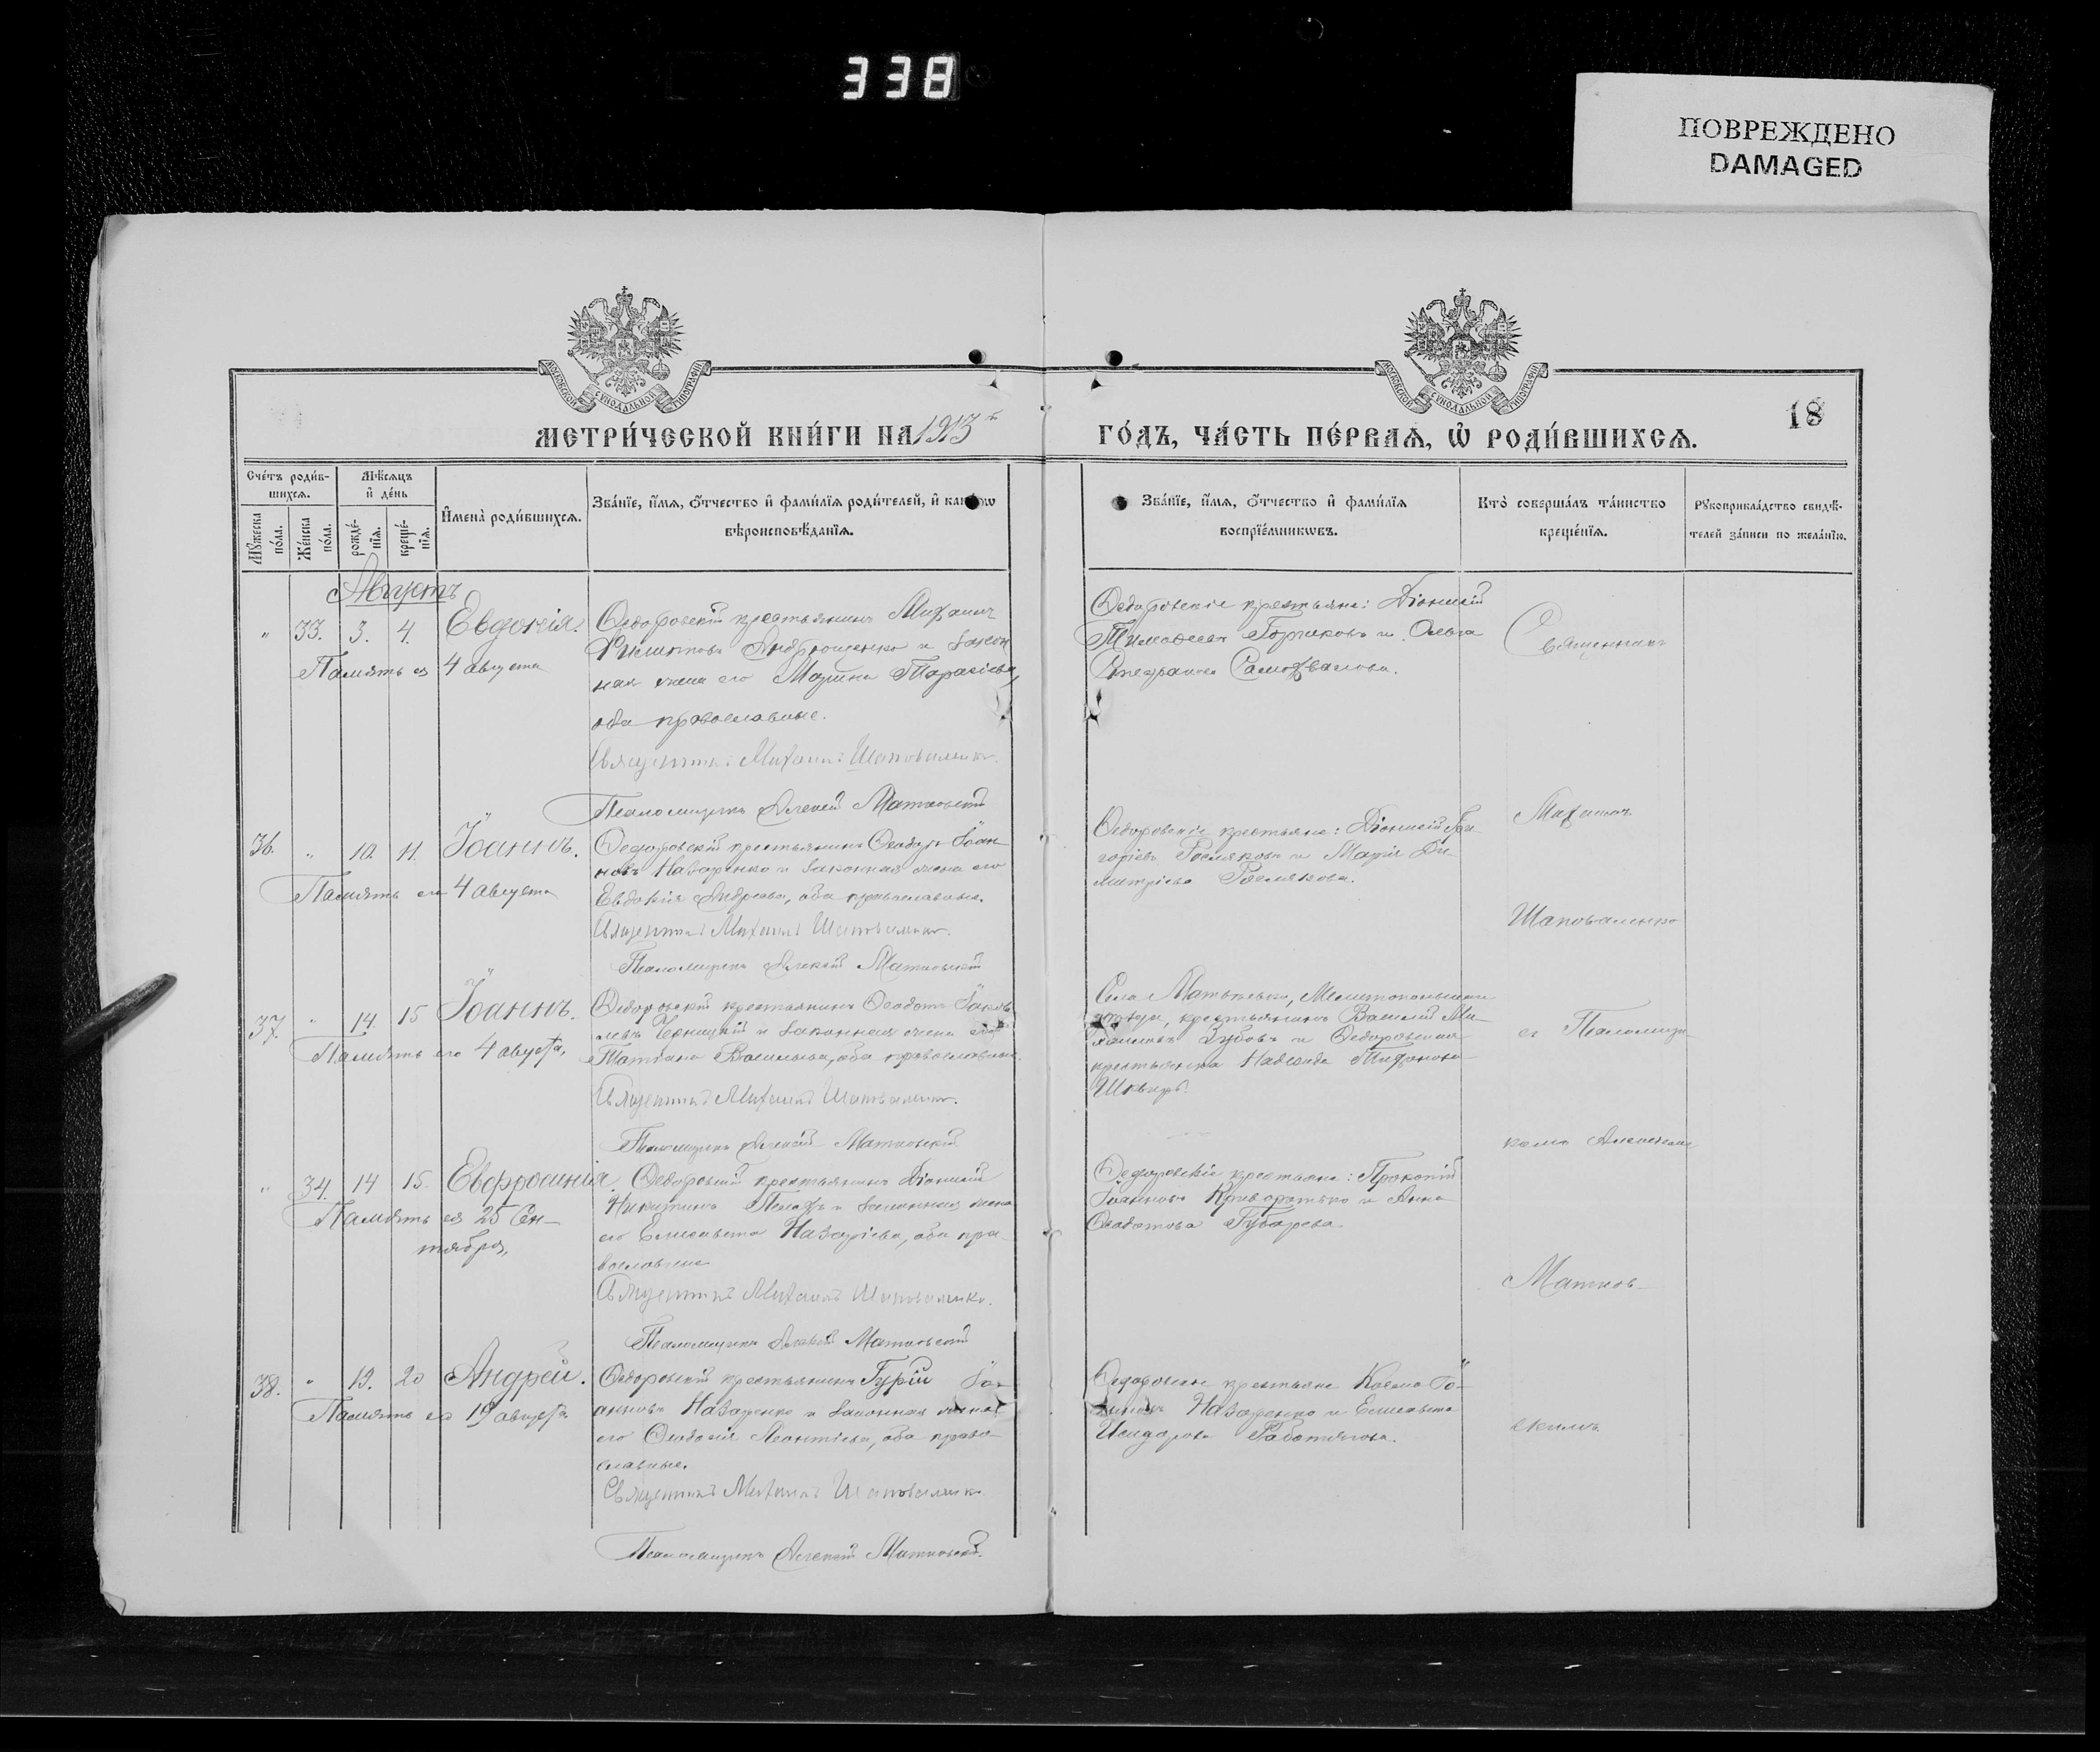 338
ПОВРЕЖДЕНО
DAMAGED
МОСКОВСКОЙ СѴНОДАЛЬНОЙ ТИПОГРАФІИ
МОСКОВСКОЙ СѴНОДАЛЬНОЙ ТИПОГРАФІИ
18
МЕТРИ́ЧЕСКОЙ КНИ́ГИ НА 1913 й
ГО́ДЪ, ЧА́СТЬ ПЕ́РВАѦ, Ѡ҆ РОДИ́ВШИХСѦ.
Сче́тъ роди́вшихсѧ.
Мꙋ́жеска по́ла.
Же́нска по́ла.
Мѣ́сѧцъ и҆ де́нь
рожде́нїѧ.
креще́нїѧ.
И҆мена̀ роди́вшихсѧ.
Зва́нїе, и҆́мѧ, ѻ҆́тчество и҆ фами́лїѧ роди́телей, и҆ како́гѡ
вѣроисповѣ́данїѧ.
Зва́нїе, и҆́мѧ, ѻ҆́тчество и҆ фами́лїѧ
воспрїе́мникѡвъ.
Кто̀ соверша́лъ та́инство
креще́нїѧ.
Рꙋкоприкла́дство свидѣ́-
телей за́писи по жела́нїю.
Августъ
" 33. 3. 4. Евдокія.
Память ея 4 августа
Ѳедоровскій крестьянинъ Михаилъ
Филиповъ Андрющенко и закон
ная жена его Марина Тарасіева,
оба православные.
Священникъ Михаилъ Шаповаленко.
Псаломщикъ Алексій Матковскій
Ѳедоровскіе крестьяне: Діонисій
Тимоѳеевъ Горчаковъ и Ольга
Стефанова Самохвалова.
Священникъ
36. " 10. 11. Іоаннъ.
Память его 4 августа
Ѳедоровскій крестьянинъ Ѳеодоръ Іоан
новъ Назаренко и законная жена его
Евдокія Андреева, оба православные.
Священникъ Михаилъ Шаповаленко.
Псаломщикъ Алексій Матковскій
Ѳедоровскіе крестьяне: Діонисій Гри
горіевъ Росляковъ и Марія Ди
митріева Рослякова.
Михаилъ
Шаповаленко
37. " 14. 15 Іоаннъ.
Память его 4 августа.
Ѳедоровскій крестьянинъ Ѳеодотъ Іаков
левъ Черницкій и законная жена его
Татіана Васильева, оба православные.
Священникъ Михаилъ Шаповаленко.
Псаломщикъ Алексій Матковскій
Села Матвѣевки, Мелитопольскаго
уѣзда, крестьянинъ Василій Ми-
хаиловъ Зубовъ и Ѳедоровская
крестьянка Надежда Тифонова
Шквиръ.
съ Псаломщи-
комъ Алексіемъ
" 34. 14 15. Евфросинія.
Память ея 25 Сен-
тября,
Ѳедоровскій крестьянинъ Діонисій
Никитинъ и законная жена
его Елисавета Назаріева, оба пра-
вославные
Священникъ Михаилъ Шаповаленко.
Псаломщикъ Алексій Матковскій
Ѳедоровскіе крестьяне: Прокопій
Іоанновъ Криворотько и Анна
Ѳеодотова Губарева.
Матков-
38. " 19. 20 Андрей.
Память его 19 августа
Ѳедоровскій крестьянинъ Гурій Іо-
анновъ Назаренко и законная жена
его Ѳеодосія Леонтіева, оба право-
славные.
Священникъ Михаилъ Шаповаленко
Псаломщикъ Алексій Матковскій.
Ѳедоровскіе крестьяне Косма Іо-
анновъ Назаренко и Елисавета
Исидорова Работягова.
скимъ.